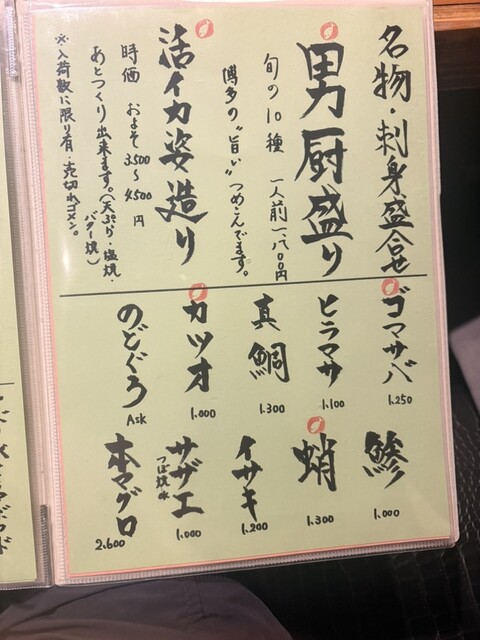 名物・刺身盛合せ
男厨盛り
旬の10種 一人前一,八〇〇円
博多の"旨い"つめこんでます。
活イカ姿造り
時価 およそ3500~4500円
あとつくり出来ます。(天ぷら・塩焼・バター焼)
※入荷数に限り有・売切れゴメン。
ゴマサバ
1.250
ヒラマサ
1.100
真鯛
1.300
カツオ
1.000
のどぐろ
Ask
鯵
1.000
蛸
1.300
イサキ
1.200
サザエ
つぼ焼ok
1.000
本マグロ
2.600